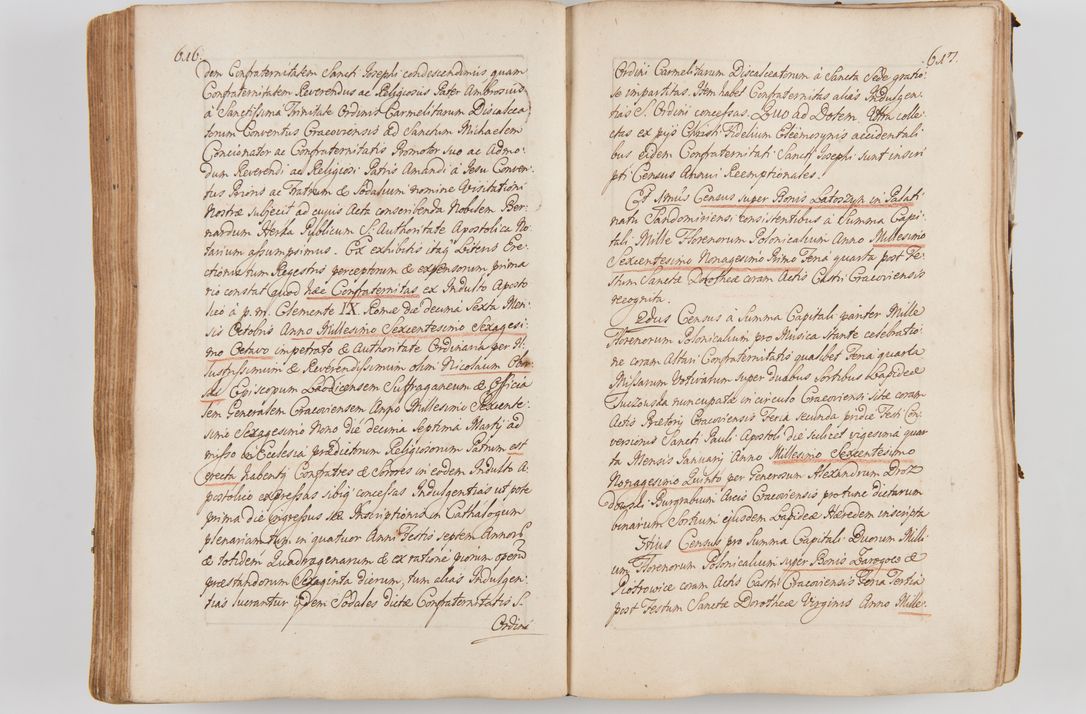 616.
dem Confraternitatem Sancti Josephi condescendimus quam
Confraternitatem Reverendus ac Religiosus Pater Ambrosius
á Sanctissima Trinitate Ordinis Carmelitarum Discalcea
torum Conventus Cracoviensis ad Sanctum Michaelem
Concionator ac Confraternitatis Promotor suo ac Admo:
dum Reverendi ac Religiosi Patris Amandi á Jesu Conven:
tus Prioris ac Fratrum & Sodalium nomine Visitationi
Nostræ subjecit ad cujus Acta conscribenda Nobilem Ber:
nardum Herka Publicum S. Authoritate Apostolica No:
tarium assumpsimus. Ex exhibitis itaq Literis Ere:
ctionis tum Regestris perceptorum & expensorum prima
rio constat quod hæc Confraternitas ex Indulto Aposto
lico á p. m. Clemente IX. Romæ die decima Sexta Men:
sis Octobris Anno Millesimo Sexcentesimo Sexagesi:
mo Octavo impetrato & Authoritate Ordinaria per Il:
lustrissimum & Reverendissimum olim Nicolaum Obor
ski Episcopum Laodicensem Suffraganeum & Officia
lem Generalem Cracoviensem Anno Millesimo Sexcente:
simo Sexagesimo Nono die decima septima Martij ad
misso in Ecclesia prædictorum Religiosorum Patrum est
erecta habentq Confratres & Sorores in eodem Indulto A:
postolico expressas sibiq concessas Indulgentias ut pote
prima die ingressus seu Inscriptionis in Cathalogum
plenariam tum in quatuor Anni Festis septem Annorũ
& totidem Quadragenarum & ex ratione piorum operũ
præstandorum Sexaginta dierum, tum alias Indulgen:
tias lucrantur ijdem Sodales dictæ Confraternitatis S.
Ordini
617.
Ordini Carmelitarum Discalceatorum á Sancta Sede gratio:
se impartitas. Item habet Confraternitas alias Indulgen
tias S. Ordini concessas. Quo ad Dotem. Ultra colle:
ctas ex pijs Christi Fidelium Eleemosynis accidentali
bus eidem Confraternitati Sancti Josephi sunt inscri
pti Census Annui Reemptionales.
Et 1mus Census super Bonis Latoszyn in Palati
natu Sandomiriensi consistentibus á Summa Capi:
tali Mille Florenorum Polonicalium Anno Millesimo
Sexcentesimo Nonagesimo Primo Feria quarta post Fe:
stum Sanctæ Dorotheæ coram Actis Castri Cracoviensis
recognita.
2dus Census á Summa Capitali pariter Mille
Florenorum Polonicalium pro Musica stante celebratio:
ne coram Altari Confraternitatis qualibet Feria quarta
Missarum Votivarum super duabus Sortibus Lapideæ
Tuczowska nuncupatæ in circulo Cracoviensi sitæ coram
Actis Prætorij Cracoviensis Feria secunda pridie Festi Con
versionis Sancti Pauli Apostoli die scilicet vigesima quar
ta Mensis Januarij Anno Millesimo Sexcentesimo
Nonagesimo Quinto per Generosum Alexandrum Droz
dowski Burgrabium Arcis Cracoviensis pro tunc dictarum
binarum Sortium ejusdem Lapideæ Hæredem inscripta
3tius Census pro Summa Capitali Duorum Milli
um Florenorum Polonicalium super Bonis Zarogoc &
Piotrowice coram Actis Castri Cracoviensis Feria Tertia
post Festum Sanctæ Dorotheæ Virginis Anno Mille: